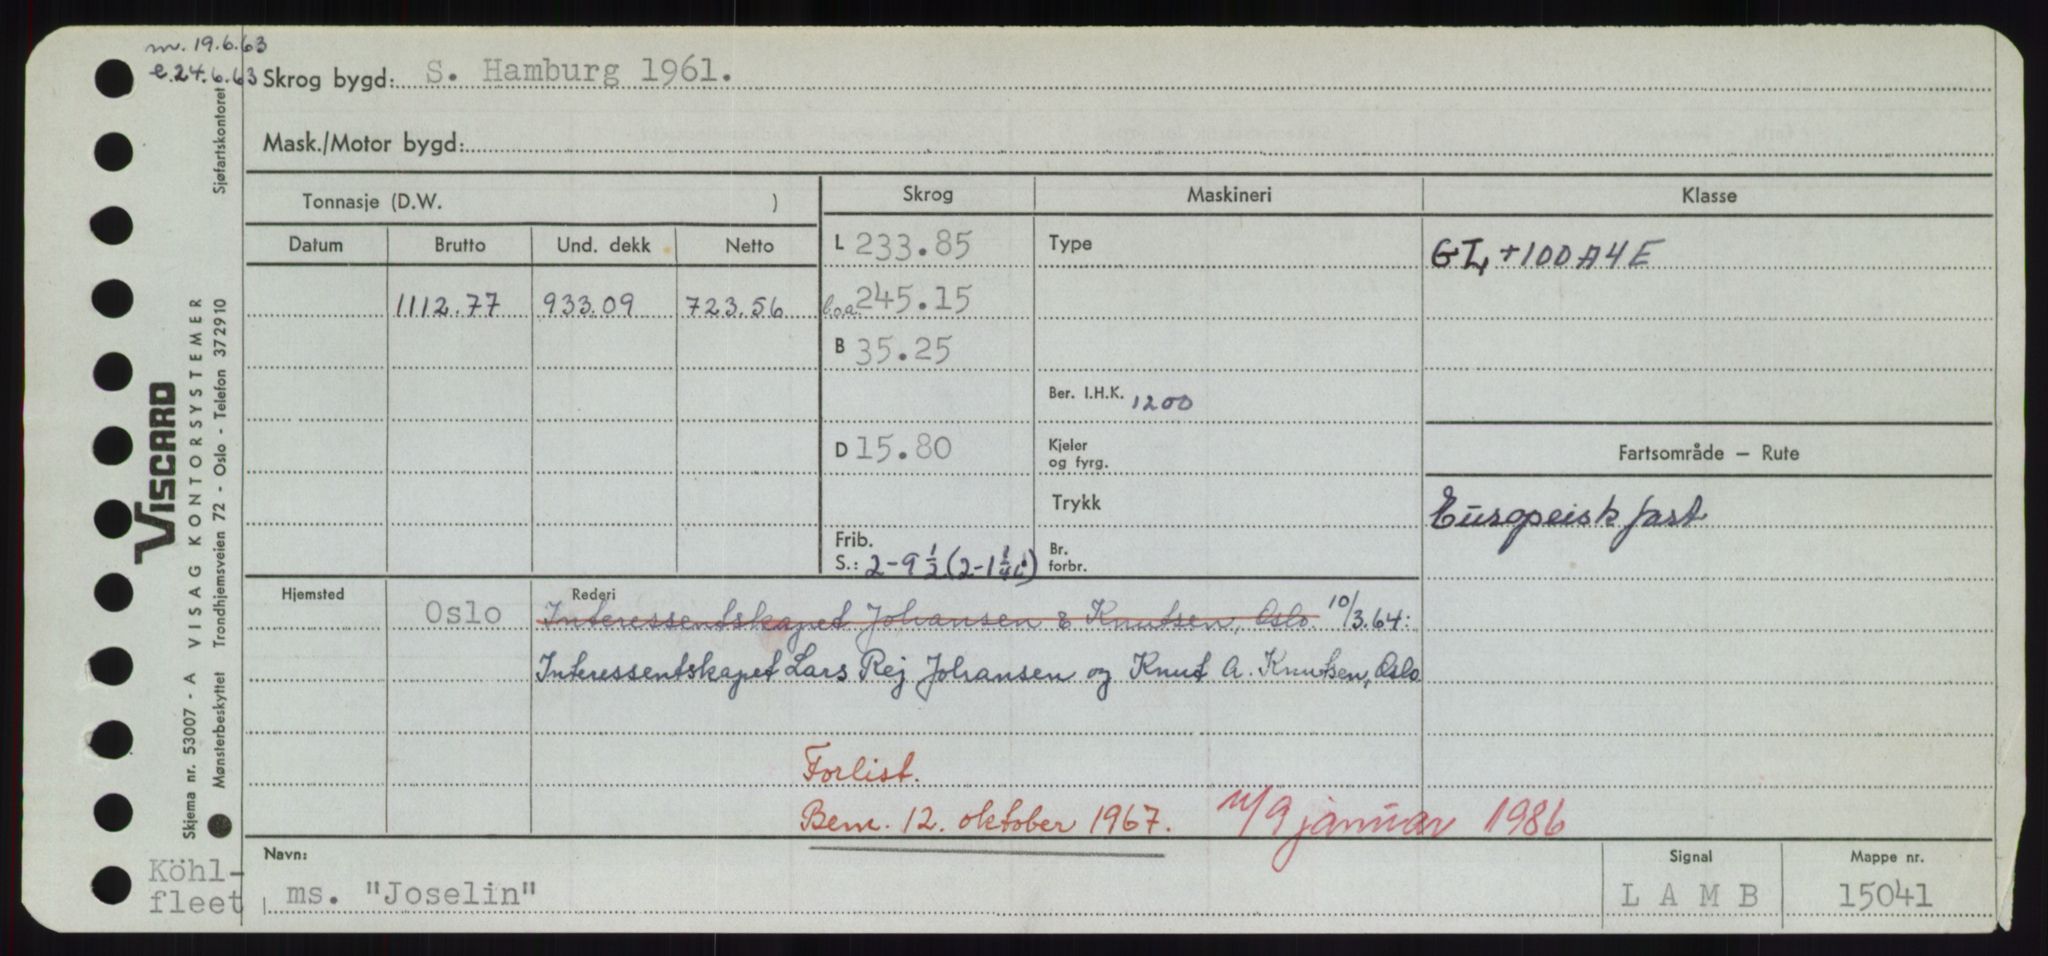 m. 19.6.63
e. 24.6.63
Skrog bygd: S. Hamburg 1961.
Mask./Motor bygd:
Tonnasje (D.W. )
Skrog
Maskineri
Klasse
Datum Brutto Und. dekk Netto
1112.77 933.09 723.56
L 233.85
l.o.a. 245.15
B 35.25
D 15.80
Frib.
S.: 2-9½ (2-1¼)
Type
Ber. I.H.K. 1200
Kjeler
og fyrg.
Trykk
Br.
forbr.
GL +100A4E
Fartsområde – Rute
Europeisk fart
Hjemsted Oslo
Rederi
Interessentskapet Johansen & Knutsen, Oslo. 10/3.64:
Interessentskapet Lars Rej Johansen og Knut A. Knutsen, Oslo
Forlist.
Bem. 12. oktober 1967. 9 januar 1986
Navn:
ms. "Joselin"
Signal
LAMB
Mappe nr.
15041
Köhl-
fleet
VISCARD
Skjema nr. 53007 - A VISAG KONTORSYSTEMER
Mønsterbeskyttet Trondhjemsveien 72 - Oslo - Telefon 372910 Sjøfartskontoret